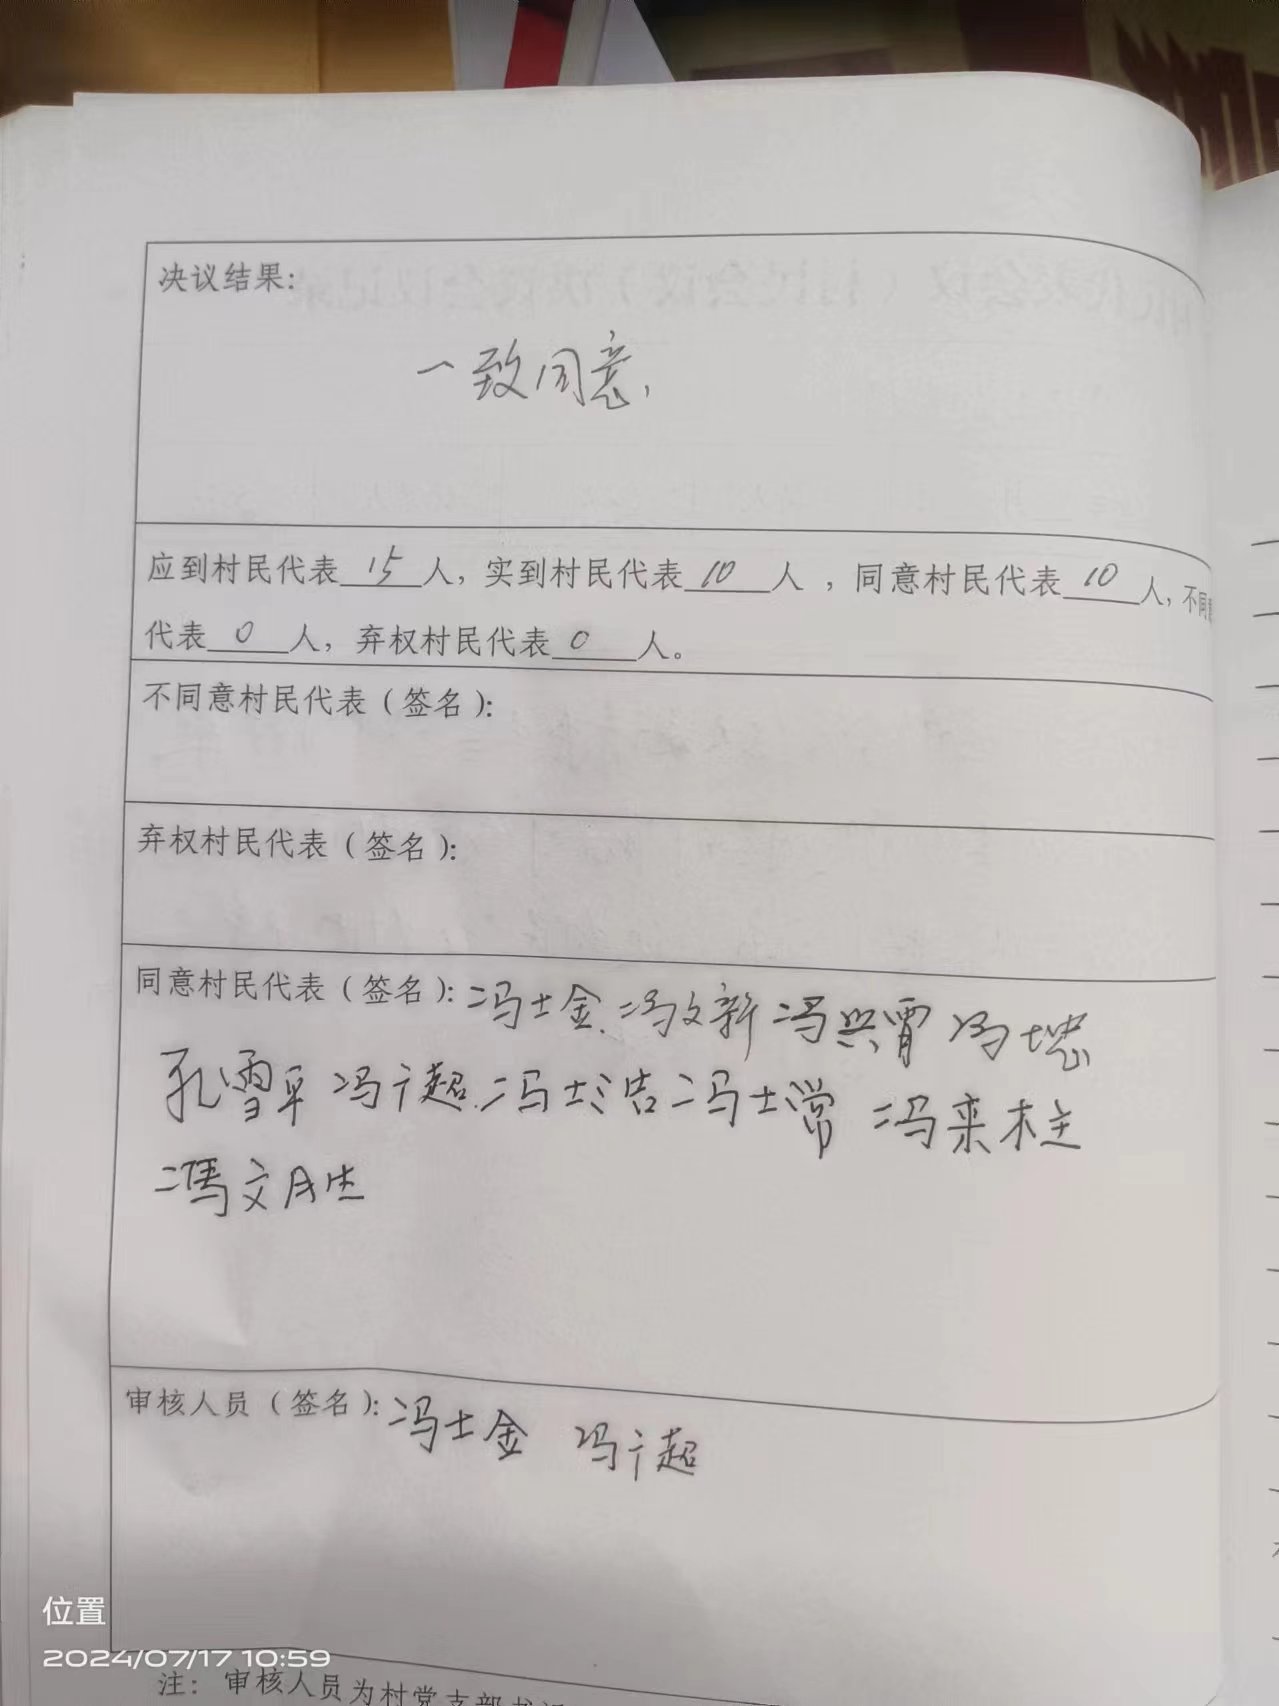 决议结果:
一致同意,
应到村民代表 15 人, 实到村民代表 10 人 , 同意村民代表 10 人, 不同
代表 0 人, 弃权村民代表 0 人。
不同意村民代表(签名):
弃权村民代表(签名):
同意村民代表(签名): 冯士金 冯文新 冯兴霄 冯
孔雪平 冯广超 冯士洁 冯士常 冯来柱
馮文胜
审核人员(签名): 冯士金 冯广超
位置
2024/07/17 10:59
注: 审核人员为村党支部书记